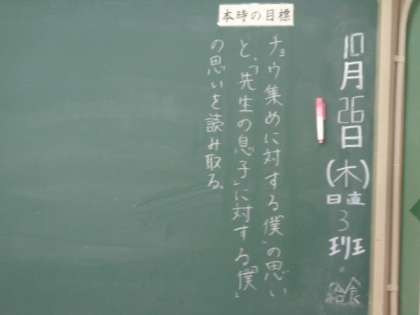 10月26日(木)
日直
3
班
本時の目標
チョウ集めに対する「僕」の思い
と、「先生の息子」に対する「僕」
の思いを読み取る。